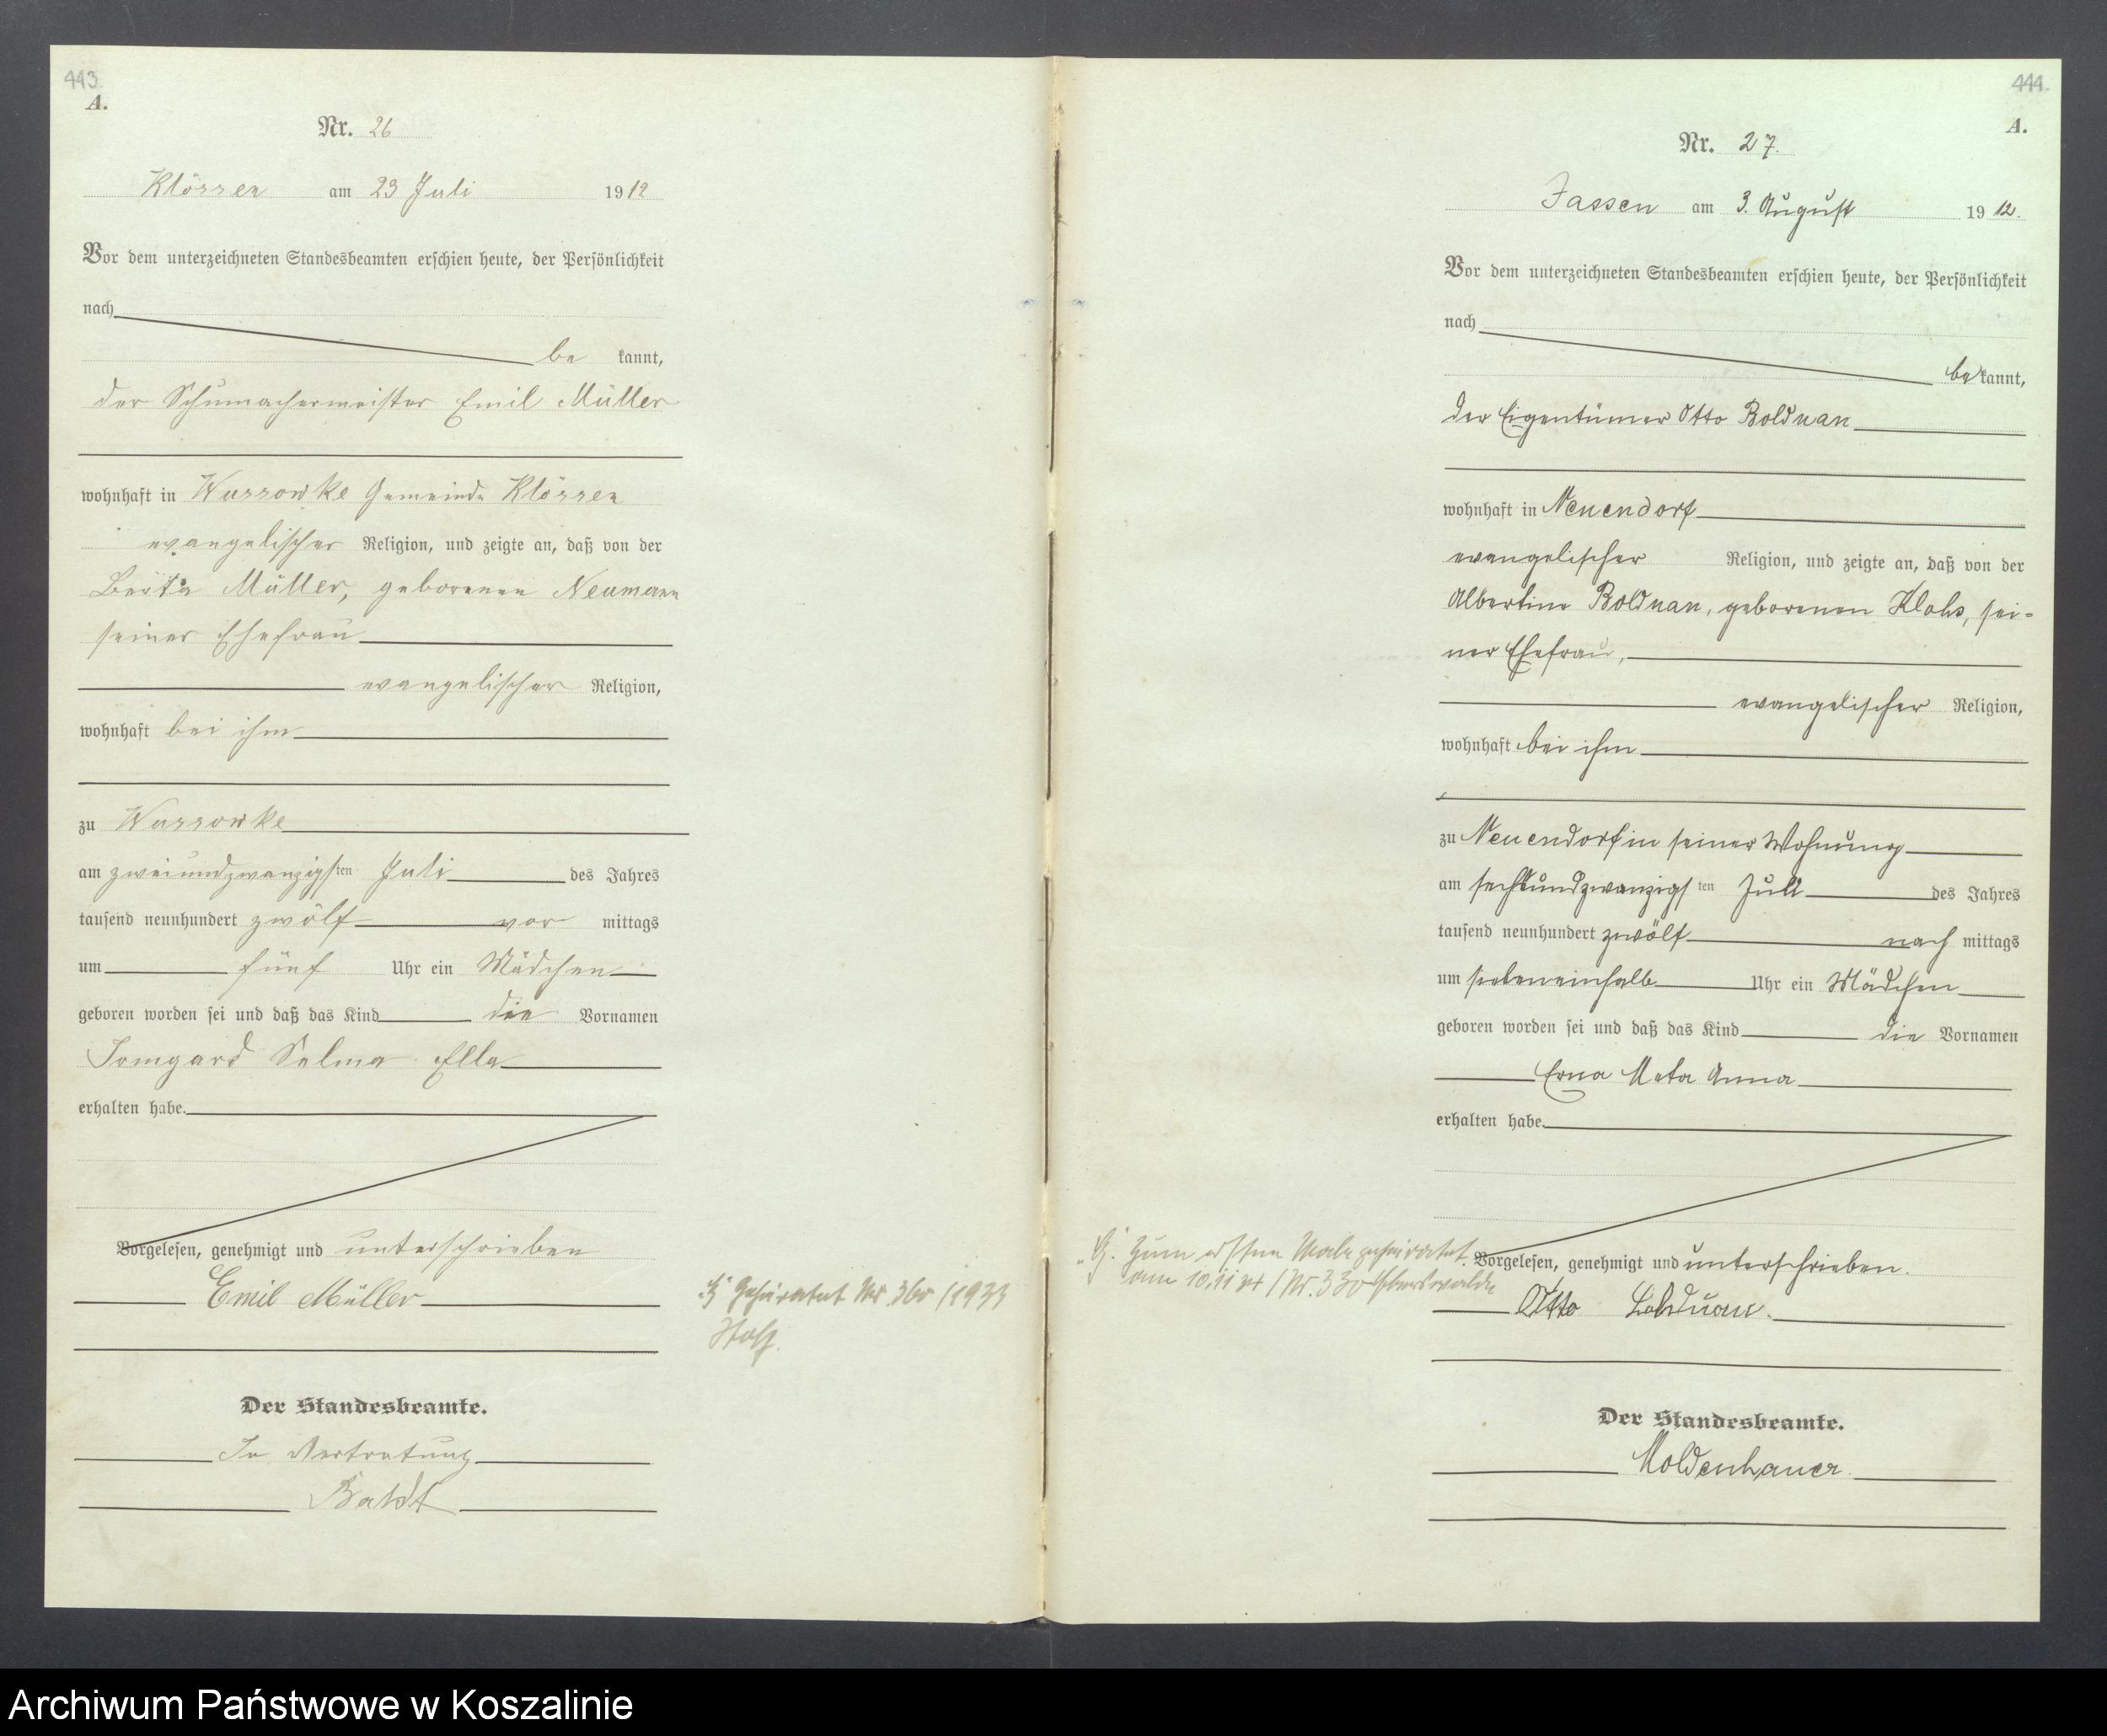 443.
A.
Nr. 26
Klössen am 23 Juli 1912
Vor dem unterzeichneten Standesbeamten erschien heute, der Persönlichkeit
nach
be kannt,
der Schumachermeister Emil Müller
wohnhaft in Wussowke Gemeinde Klössen
evangelischer Religion, und zeigte an, daß von der
Berta Müller, geborenen Neumann
seiner Ehefrau
evangelischer Religion,
wohnhaft bei ihm
zu Wussowke
am zweiundzwanzigsten Juli des Jahres
tausend neunhundert zwölf vor mittags
um fünf Uhr ein Mädchen
geboren worden sei und daß das Kind die Vornamen
Irmgard Selma Ella
erhalten habe.
Vorgelesen, genehmigt und unterschrieben
Emil Müller
Geheiratet Nr. 360/1933
Stolp.
Der Standesbeamte.
In Vertretung
444.
A.
Nr. 27.
Jassen am 3. August 1912.
Vor dem unterzeichneten Standesbeamten erschien heute, der Persönlichkeit
nach
bekannt,
der Eigentümer Otto Bolduan
wohnhaft in Neuendorf
evangelischer Religion, und zeigte an, daß von der
Albertine Bolduan, geborenen Klohs, sei-
ner Ehefrau,
evangelischer Religion,
wohnhaft bei ihm
zu Neuendorf in seiner Wohnung
am sechsundzwanzigsten Juli des Jahres
tausend neunhundert zwölf nach mittags
um siebeneinhalb Uhr ein Mädchen
geboren worden sei und daß das Kind die Vornamen
Erna Meta Anna
erhalten habe.
Zum ersten Male geheiratet
am 10.11 Nr. 330 Eberswalde
Vorgelesen, genehmigt und unterschrieben.
Otto Bolduan.
Der Standesbeamte.
Moldenhauer.
Archiwum Państwowe w Koszalinie